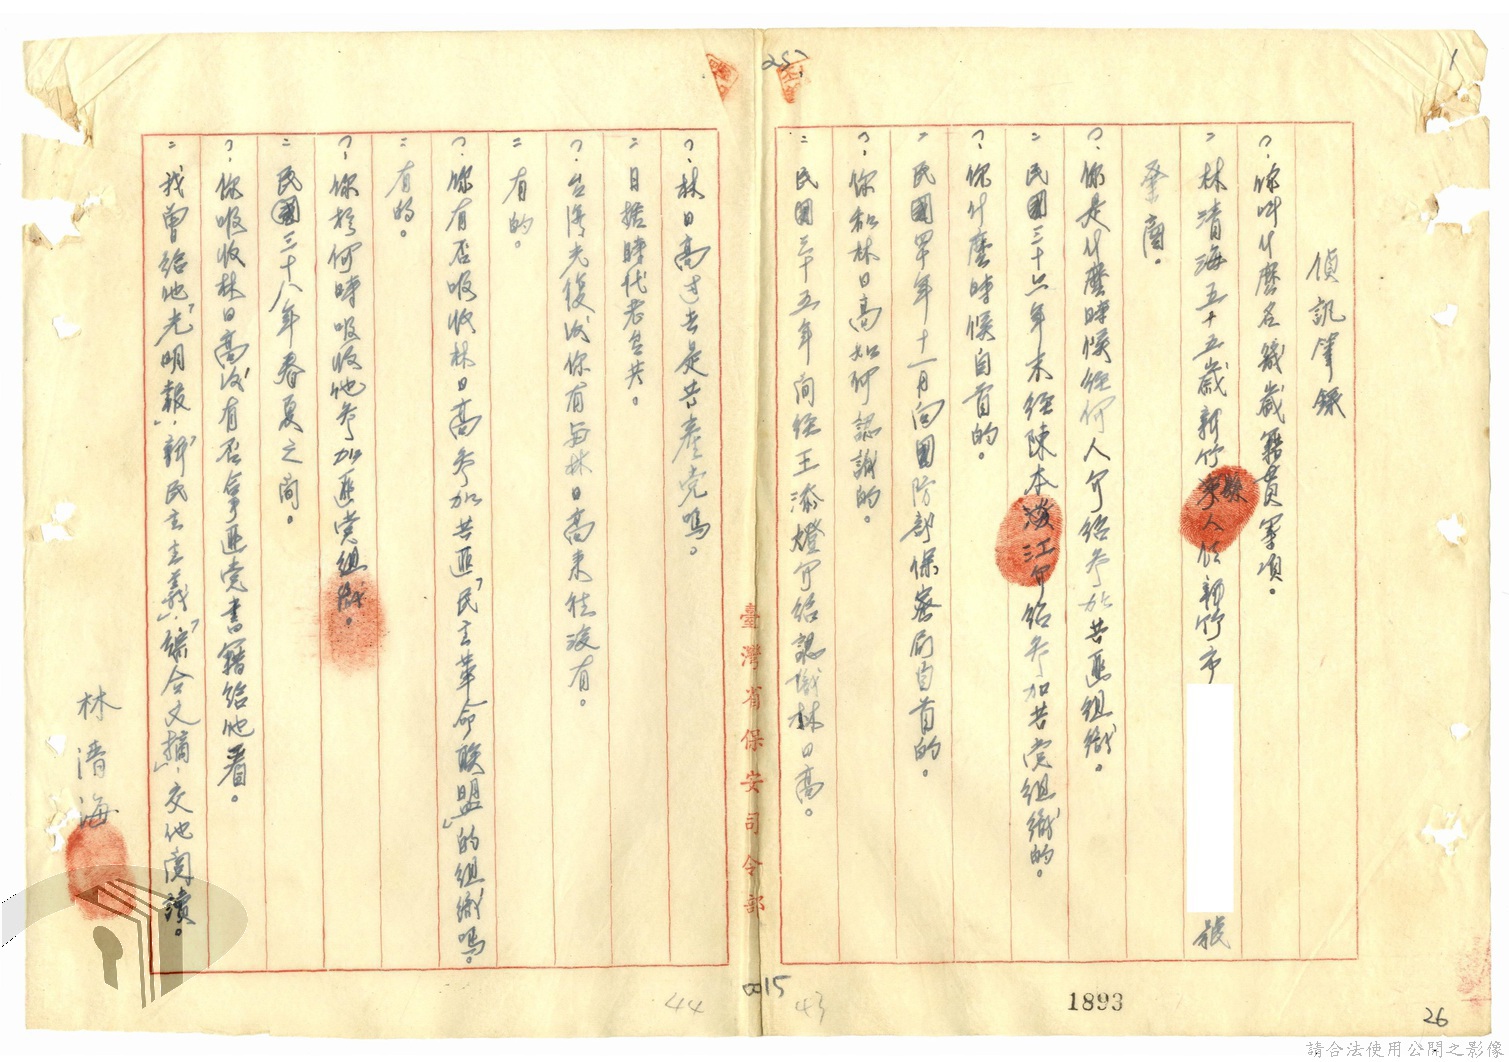 1
25
偵訊筆錄
?、你叫什麼名幾歲籍貫等項。
= 林清海五十五歲新竹縣人住新竹市 號
業商。
?、你是什麼時候經何人介紹參加共匪組織。
= 民國三十六年末經陳本江介紹參加共党組織的。
?、你什麼時候自首的。
= 民國四十年十一月向國防部保密局自首的。
?、你和林日高如何認識的。
= 民國三十五年間經王添燈介紹認識林日高。
臺灣省保安司令部
?、林日高过去是共產党嗎。
= 日据時代老台共。
?、台灣光復後你有与林日高來往沒有。
= 有的。
?、你有否吸收林日高參加共匪「民主革命联盟」的組織嗎。
= 有的。
?、你於何時吸收他參加匪党組織。
= 民國三十八年春夏之間。
?、你吸收林日高後有否拿匪党書籍給他看。
= 我曾給他「光明報」、「新民主主義」、「綜合文摘」、交他閱讀。
林清海
44
0015
43
1893
26
請合法使用公開之影像